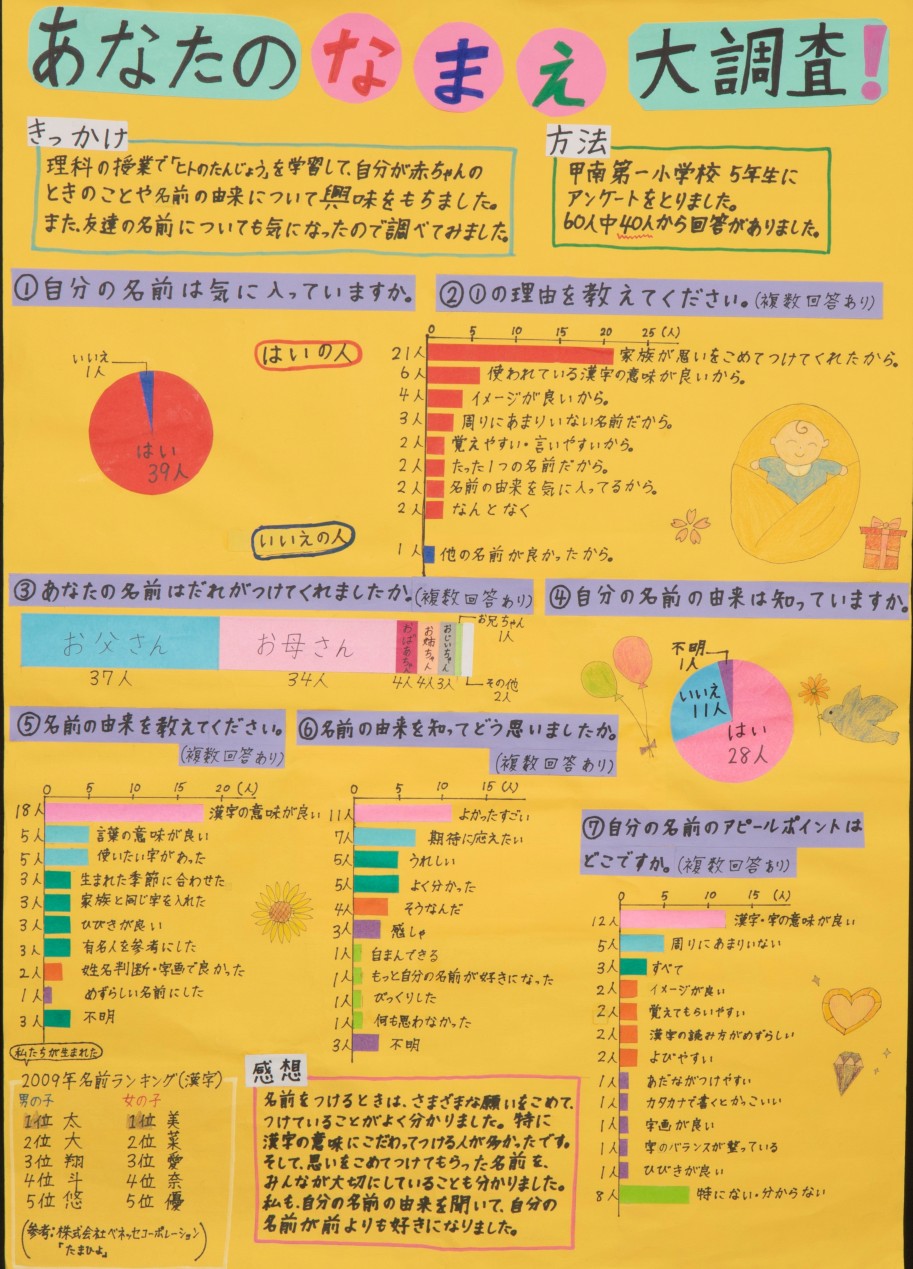 あなたのなまえ大調査!
きっかけ
理科の授業で「ヒトのたんじょう」を学習して、自分が赤ちゃんの
ときのことや名前の由来について興味をもちました。
また、友達の名前についても気になったので調べてみました。
方法
甲南第一小学校 5年生に
アンケートをとりました。
60人中40人から回答がありました。
①自分の名前は気に入っていますか。
いいえ
1人
はい
39人
②①の理由を教えてください。(複数回答あり)
はいの人
0 5 10 15 20 25 (人)
21人 家族が思いをこめてつけてくれたから。
6人 使われている漢字の意味が良いから。
4人 イメージが良いから。
3人 周りにあまりいない名前だから。
2人 覚えやすい・言いやすいから。
2人 たった1つの名前だから。
2人 名前の由来を気に入ってるから。
2人 なんとなく
いいえの人
1人 他の名前が良かったから。
③あなたの名前はだれがつけてくれましたか。(複数回答あり)
お父さん
37人
お母さん
34人
おばあちゃん
4人
お姉ちゃん
4人
おじいちゃん
3人
お兄ちゃん
1人
その他
2人
④自分の名前の由来は知っていますか。
不明
1人
いいえ
11人
はい
28人
⑤名前の由来を教えてください。
(複数回答あり)
0 5 10 15 20 (人)
18人 漢字の意味が良い
5人 言葉の意味が良い
5人 使いたい字があった
3人 生まれた季節に合わせた
3人 家族と同じ字を入れた
3人 ひびきが良い
3人 有名人を参考にした
2人 姓名判断・字画で良かった
1人 めずらしい名前にした
3人 不明
⑥名前の由来を知ってどう思いましたか。
(複数回答あり)
0 5 10 15 (人)
11人 よかったすごい
7人 期待に応えたい
5人 うれしい
5人 よく分かった
4人 そうなんだ
3人 感しゃ
1人 自まんできる
1人 もっと自分の名前が好きになった
1人 びっくりした
1人 何も思わなかった
3人 不明
⑦自分の名前のアピールポイントは
どこですか。(複数回答あり)
0 5 10 15 (人)
12人 漢字・字の意味が良い
5人 周りにあまりいない
3人 すべて
2人 イメージが良い
2人 覚えてもらいやすい
2人 漢字の読み方がめずらしい
2人 よびやすい
1人 あだながつけやすい
1人 カタカナで書くとかっこいい
1人 字画が良い
1人 字のバランスが整っている
1人 ひびきが良い
8人 特にない・分からない
私たちが生まれた
2009年名前ランキング(漢字)
男の子 女の子
1位 太 1位 美
2位 大 2位 菜
3位 翔 3位 愛
4位 斗 4位 奈
5位 悠 5位 優
(参考:株式会社ベネッセコーポレーション
「たまひよ」)
感想
名前をつけるときは、さまざまな願いをこめて、
つけていることがよく分かりました。特に
漢字の意味にこだわってつける人が多かったです。
そして、思いをこめてつけてもらった名前を、
みんなが大切にしていることも分かりました。
私も、自分の名前の由来を聞いて、自分の
名前が前よりも好きになりました。